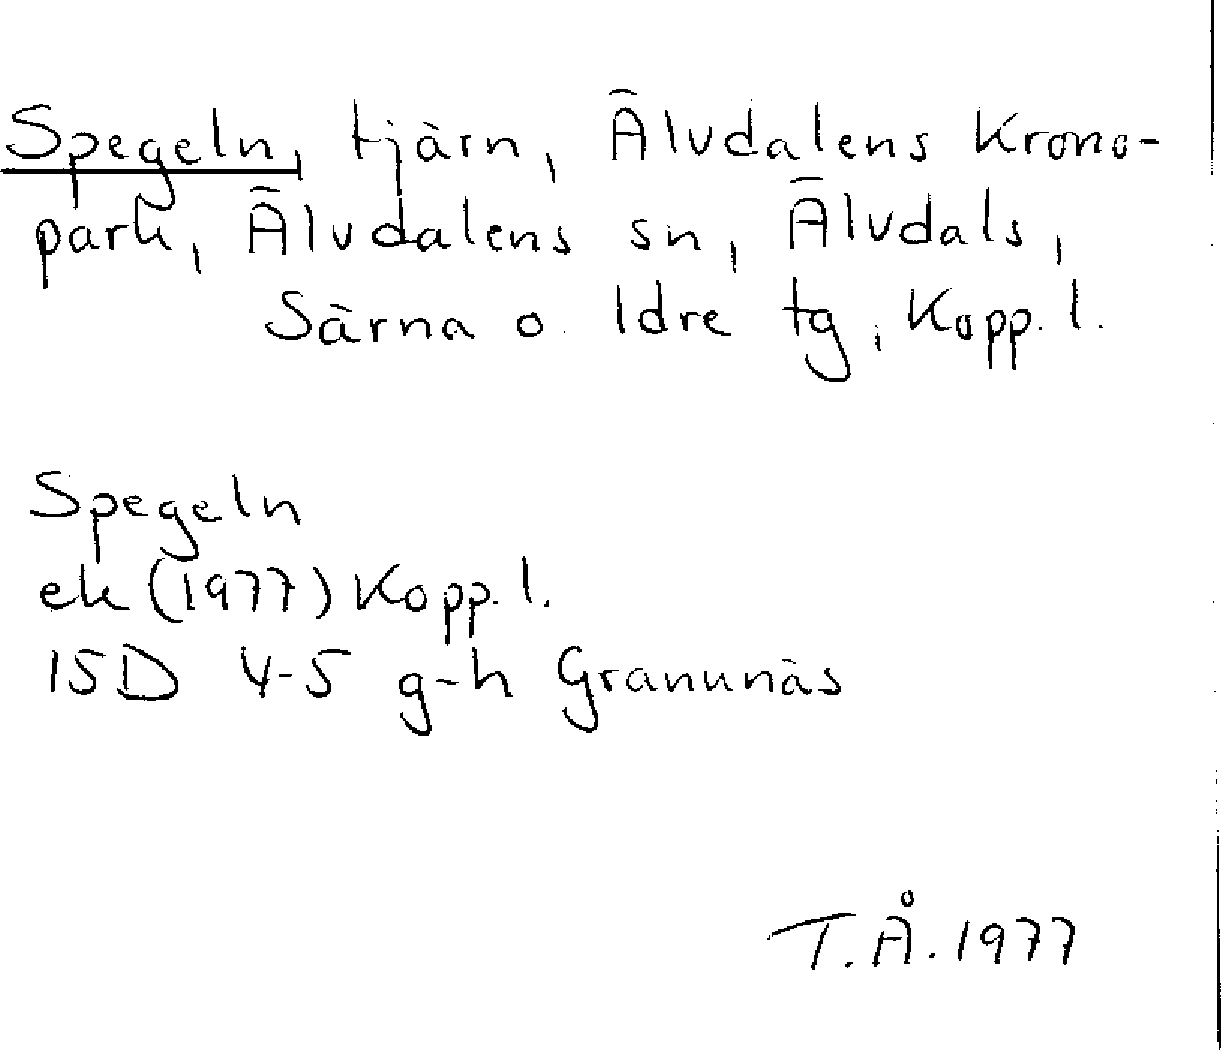 Spegeln, tjärn, Älvdalens Krono-
park, Älvdalens sn, Älvdals,
Särna o. Idre tg, Kopp. l.
Spegeln
ek (1977) Kopp. l.
15D 4-5 g-h Granunäs
T. Å. 1977